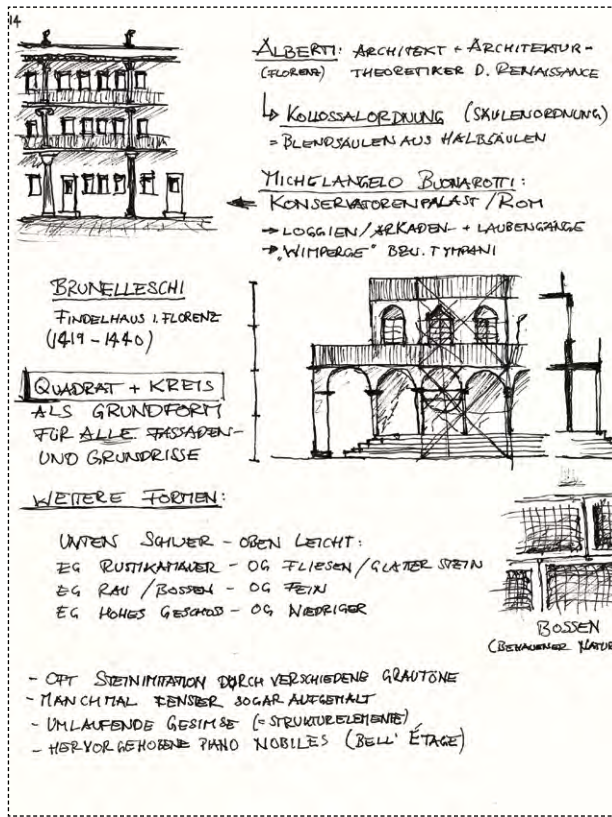 14
ALBERTI: ARCHITEKT + ARCHITEKTUR-
(FLORENZ) THEORETIKER D. RENAISSANCE
↳ KOLLOSSALORDNUNG (SÄULENORDNUNG)
= BLENDSÄULEN AUS HALBSÄULEN
MICHELANGELO BUONAROTTI:
KONSERVATORENPALAST/ROM
→ LOGGIEN/ARKADEN- + LAUBENGÄNGE
→ "WIMPERGE" BZW. TYMPANI
BRUNELLESCHI
FINDELHAUS I. FLORENZ
(1419-1440)
QUADRAT + KREIS
ALS GRUNDFORM
FÜR ALLE FASSADEN-
UND GRUNDRISSE
WEITERE FORMEN:
UNTEN SCHWER - OBEN LEICHT:
EG RUSTIKAMAUER - OG FLIESEN/GLATTER STEIN
EG RAU/BOSSEN - OG FEIN
EG HOHES GESCHOSS - OG NIEDRIGER
BOSSEN
(BEHAUENER NATUR
- OFT STEINIMITATION DURCH VERSCHIEDENE GRAUTÖNE
- MANCHMAL FENSTER SOGAR AUFGEMALT
- UMLAUFENDE GESIMSE (= STRUKTURELEMENTE)
- HERVORGEHOBENE PIANO NOBILES (BELL' ÉTAGE)